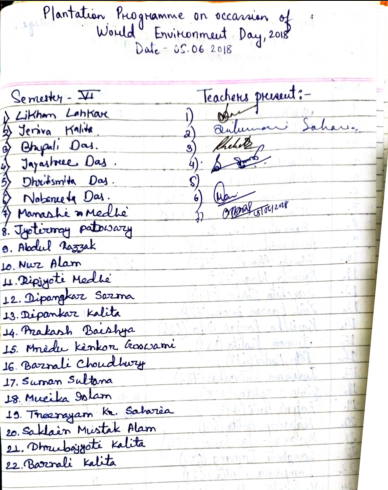 Plantation Programme on occassion of :
World Environment Day, 2018
Date - 05.06 2018
Semester - VI
Teachers present :-
1) Likhan Lahkar
2) Jeriva Kalita
3) Bhupali Das.
4) Jayashree Das.
5) Dhritsmita Das.
6) Nabaneeta Das.
7) Manashi Medhi
8. Jyotirmoy patowary
9. Abdul Razzak
10. Nur Alam
11. Dipjyoti Medhi
12. Dipangkar Sarma
13. Dipankar Kalita
14. Prakash Baishya
15. Mridu Kinkor Goswami
16. Barnali Choudhury
17. Suman Sultana
18. Mucika Islam
19. Treenayam Kr. Saharia
20. Saklain Mustak Alam
21. Dhrubajyoti Kalita
22. Barnali Kalita
1)
2) Saharia
3)
4)
5)
6)
7)